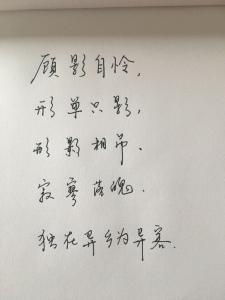 顾影自怜，
形单只影，
形影相吊、
寂寥落魄、
独在异乡为异客.